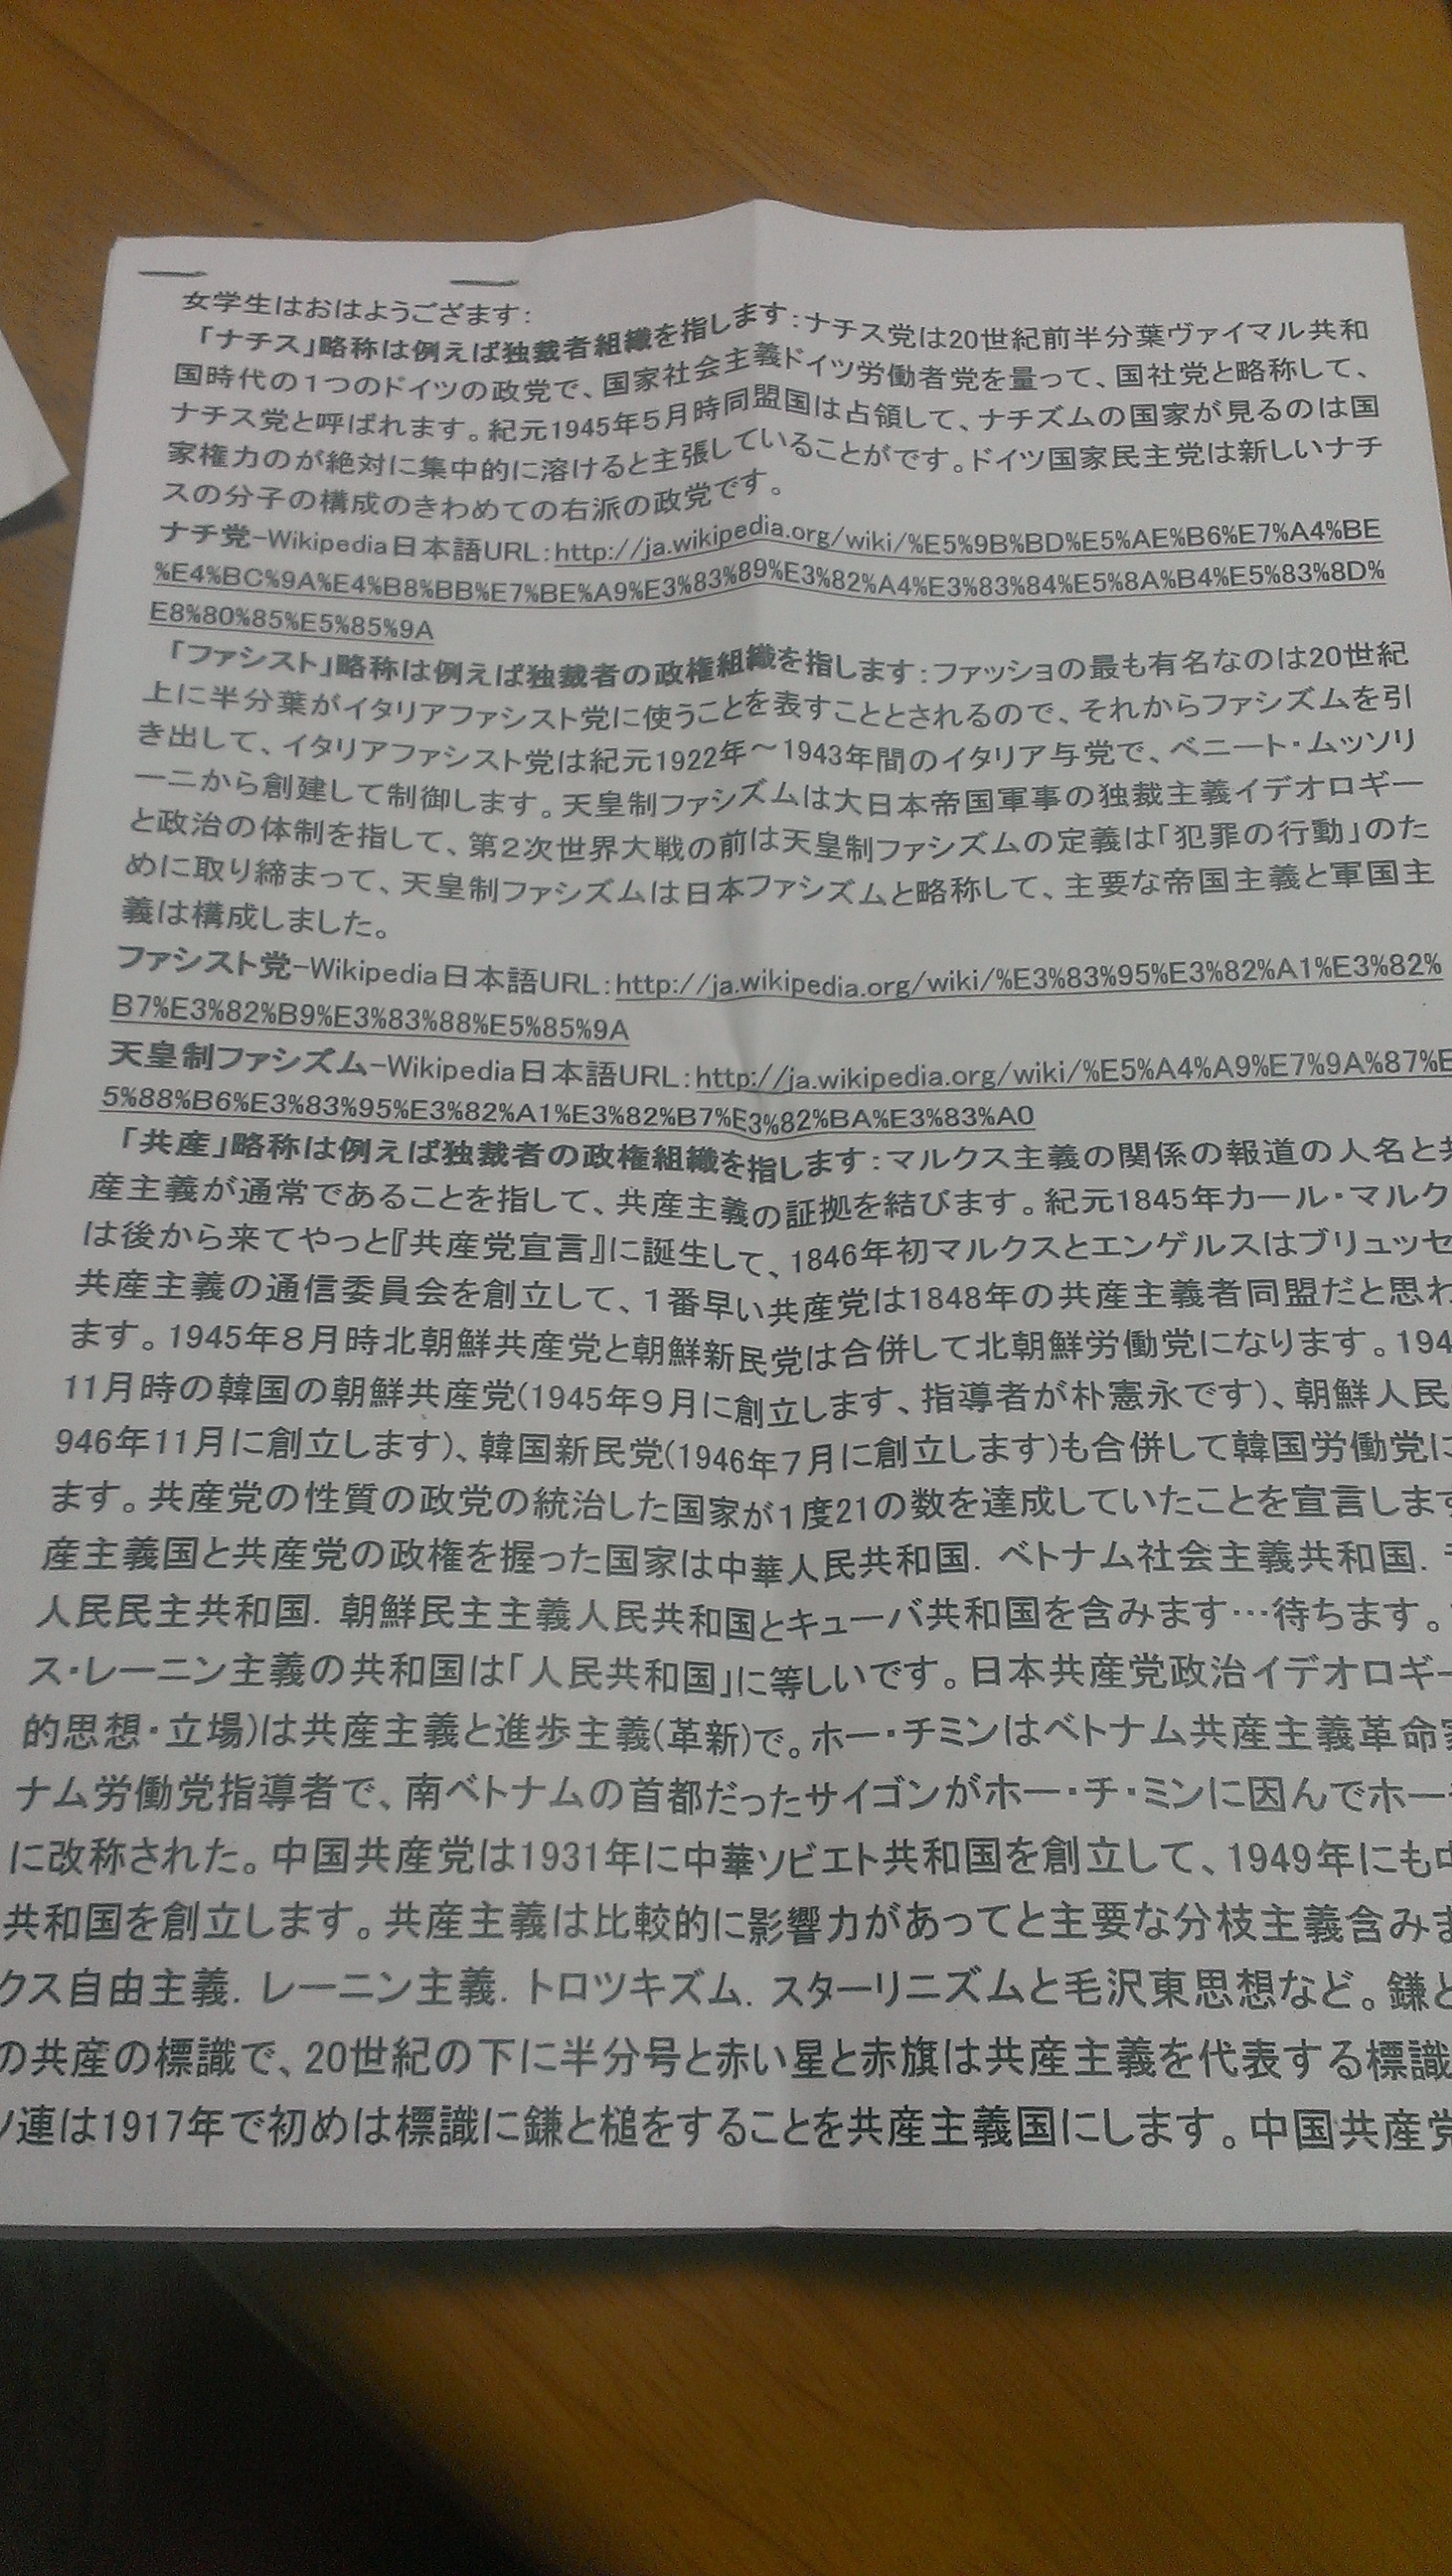 女学生はおはようござます：
「ナチス」略称は例えば独裁者組織を指します：ナチス党は20世紀前半分葉ヴァイマル共和
国時代の１つのドイツの政党で、国家社会主義ドイツ労働者党を量って、国社党と略称して、
ナチス党と呼ばれます。紀元1945年５月時同盟国は占領して、ナチズムの国家が見るのは国
家権力のが絶対に集中的に溶けると主張していることがです。ドイツ国家民主党は新しいナチ
スの分子の構成のきわめての右派の政党です。
ナチ党-Wikipedia日本語URL：http://ja.wikipedia.org/wiki/%E5%9B%BD%E5%AE%B6%E7%A4%BE
%E4%BC%9A%E4%B8%BB%E7%BE%A9%E3%83%89%E3%82%A4%E3%83%84%E5%8A%B4%E5%83%8D%
E8%80%85%E5%85%9A
「ファシスト」略称は例えば独裁者の政権組織を指します：ファッショの最も有名なのは20世紀
上に半分葉がイタリアファシスト党に使うことを表すこととされるので、それからファシズムを引
き出して、イタリアファシスト党は紀元1922年～1943年間のイタリア与党で、ベニート・ムッソリ
ーニから創建して制御します。天皇制ファシズムは大日本帝国軍事の独裁主義イデオロギー
と政治の体制を指して、第２次世界大戦の前は天皇制ファシズムの定義は「犯罪の行動」のた
めに取り締まって、天皇制ファシズムは日本ファシズムと略称して、主要な帝国主義と軍国主
義は構成しました。
ファシスト党-Wikipedia日本語URL：http://ja.wikipedia.org/wiki/%E3%83%95%E3%82%A1%E3%82%
B7%E3%82%B9%E3%83%88%E5%85%9A
天皇制ファシズム-Wikipedia日本語URL：http://ja.wikipedia.org/wiki/%E5%A4%A9%E7%9A%87%E
5%88%B6%E3%83%95%E3%82%A1%E3%82%B7%E3%82%BA%E3%83%A0
「共産」略称は例えば独裁者の政権組織を指します：マルクス主義の関係の報道の人名と共
産主義が通常であることを指して、共産主義の証拠を結びます。紀元1845年カール・マルク
は後から来てやっと『共産党宣言』に誕生して、1846年初マルクスとエンゲルスはブリュッセ
共産主義の通信委員会を創立して、１番早い共産党は1848年の共産主義者同盟だと思わ
ます。1945年８月時北朝鮮共産党と朝鮮新民党は合併して北朝鮮労働党になります。194
11月時の韓国の朝鮮共産党(1945年９月に創立します、指導者が朴憲永です)、朝鮮人民
946年11月に創立します)、韓国新民党(1946年７月に創立します)も合併して韓国労働党に
ます。共産党の性質の政党の統治した国家が１度21の数を達成していたことを宣言します
産主義国と共産党の政権を握った国家は中華人民共和国．ベトナム社会主義共和国．
人民民主共和国．朝鮮民主主義人民共和国とキューバ共和国を含みます…待ちます。
ス・レーニン主義の共和国は「人民共和国」に等しいです。日本共産党政治イデオロギー
的思想・立場)は共産主義と進歩主義(革新)で。ホー・チミンはベトナム共産主義革命家
ナム労働党指導者で、南ベトナムの首都だったサイゴンがホー・チ・ミンに因んでホー
に改称された。中国共産党は1931年に中華ソビエト共和国を創立して、1949年にも中
共和国を創立します。共産主義は比較的に影響力があってと主要な分枝主義含みま
クス自由主義．レーニン主義．トロツキズム．スターリニズムと毛沢東思想など。鎌と
の共産の標識で、20世紀の下に半分号と赤い星と赤旗は共産主義を代表する標識
ソ連は1917年で初めは標識に鎌と槌をすることを共産主義国にします。中国共産党